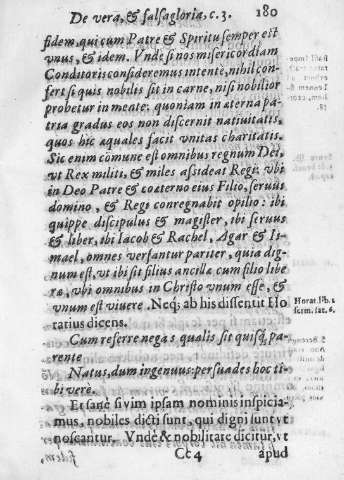 De vera, & falsa gloria, c. 3. 180
fidem, qui cum Patre & Spiritu semper est
vnus, & idem. Vnde si nos misericordiam
Conditoris consideremus intente, nihil con-
fert si quis nobilis sit in carne, nisi nobilior
probetur in mente: quoniam in æterna pa-
tria gradus eos non discernit natiuitatis,
quos hic æquales facit vnitas charitatis.
Sic enim comune est omnibus regnum Dei,
vt Rex militi, & miles assideat Regi: vbi
in Deo Patre & coæterno eius Filio, seruus
domino, & Regi congregabit opilio: ibi
quippe discipulus & magister, ibi seruus
& liber, ibi Iacob & Rachel, Agar & Is-
mael, omnes versantur pariter, quia dig-
num est, vt ibi sit filius ancillæ cum filio libe
ræ, vbi omnibus in Christo vnum esse, &
vnum est viuere. Neq; ab his dissentit Ho
ratius dicens.
Horat. lib. 1
serm. sat. 6.
Cum referre negas qualis sit quisq; pa-
rente
Natus, dum ingenuus: persuades hoc ti-
bi verè.
Et sanè si vim ipsam nominis inspicia-
mus, nobiles dicti sunt, qui digni sunt vt
noscantur. Vnde & nobilitate dicitur, vt
Cc 4 apud